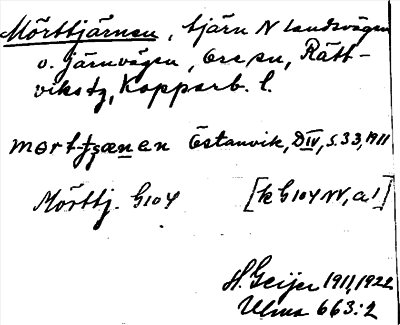 Mörttjärnen, tjärn N landsvägen
o. järnvägen, Ore sn, Rätt-
viks tg, Kopparb. l.
Östanvik, DIV, s. 33, 1911
Mörttj. G104 [k G104 NV, a1]
H. Geijer 1911, 1922
Ulma 663:2